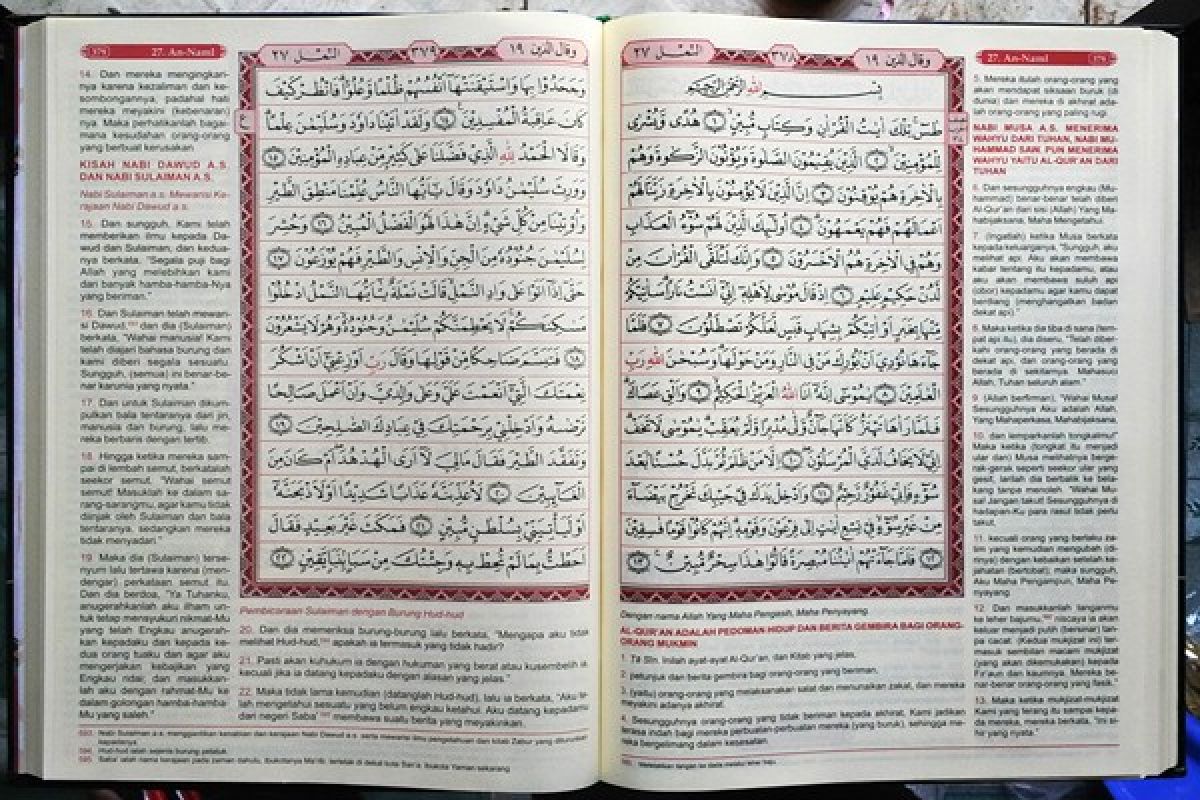 27. An-Naml
النمل ٢٧
٣٧٨
وقال الذين ١٩
بِسْمِ اللهِ الرَّحْمٰنِ الرَّحِيْمِ
طٰسۤ تِلْكَ اٰيٰتُ الْقُرْاٰنِ وَكِتَابٍ مُّبِيْنٍ ١ هُدًى وَّبُشْرٰى
لِلْمُؤْمِنِيْنَ ٢ الَّذِيْنَ يُقِيْمُوْنَ الصَّلٰوةَ وَيُؤْتُوْنَ الزَّكٰوةَ وَهُمْ
بِالْاٰخِرَةِ هُمْ يُوْقِنُوْنَ ٣ اِنَّ الَّذِيْنَ لَا يُؤْمِنُوْنَ بِالْاٰخِرَةِ زَيَّنَّا لَهُمْ
اَعْمَالَهُمْ فَهُمْ يَعْمَهُوْنَ ٤ اُولٰۤىِٕكَ الَّذِيْنَ لَهُمْ سُوْۤءُ الْعَذَابِ
وَهُمْ فِى الْاٰخِرَةِ هُمُ الْاَخْسَرُوْنَ ٥ وَاِنَّكَ لَتُلَقَّى الْقُرْاٰنَ مِنْ
لَّدُنْ حَكِيْمٍ عَلِيْمٍ ٦ اِذْ قَالَ مُوْسٰى لِاَهْلِهٖٓ اِنِّيْٓ اٰنَسْتُ نَارًاۗ سَاٰتِيْكُمْ
مِّنْهَا بِخَبَرٍ اَوْ اٰتِيْكُمْ بِشِهَابٍ قَبَسٍ لَّعَلَّكُمْ تَصْطَلُوْنَ ٧ فَلَمَّا
جَاۤءَهَا نُوْدِيَ اَنْۢ بُوْرِكَ مَنْ فِى النَّارِ وَمَنْ حَوْلَهَاۗ وَسُبْحٰنَ اللّٰهِ رَبِّ
الْعٰلَمِيْنَ ٨ يٰمُوْسٰٓى اِنَّهٗٓ اَنَا اللّٰهُ الْعَزِيْزُ الْحَكِيْمُ ٩ وَاَلْقِ عَصَاكَۗ
فَلَمَّا رَاٰهَا تَهْتَزُّ كَاَنَّهَا جَاۤنٌّ وَّلّٰى مُدْبِرًا وَّلَمْ يُعَقِّبْۗ يٰمُوْسٰى لَا تَخَفْ
اِنِّيْ لَا يَخَافُ لَدَيَّ الْمُرْسَلُوْنَ ١٠ اِلَّا مَنْ ظَلَمَ ثُمَّ بَدَّلَ حُسْنًاۢ بَعْدَ
سُوْۤءٍ فَاِنِّيْ غَفُوْرٌ رَّحِيْمٌ ١١ وَاَدْخِلْ يَدَكَ فِيْ جَيْبِكَ تَخْرُجْ بَيْضَاۤءَ
مِنْ غَيْرِ سُوْۤءٍۗ فِيْ تِسْعِ اٰيٰتٍ اِلٰى فِرْعَوْنَ وَقَوْمِهٖۗ اِنَّهُمْ كَانُوْا قَوْمًا فٰسِقِيْنَ
١٢ فَلَمَّا جَاۤءَتْهُمْ اٰيٰتُنَا مُبْصِرَةً قَالُوْا هٰذَا سِحْرٌ مُّبِيْنٌ ١٣
Dengan nama Allah Yang Maha Pengasih, Maha Penyayang
AL-QUR'AN ADALAH PEDOMAN HIDUP DAN BERITA GEMBIRA BAGI ORANG-
ORANG MUKMIN
1. Tā Sīn. Inilah ayat-ayat Al-Qur'an, dan Kitab yang jelas,
2. petunjuk dan berita gembira bagi orang-orang yang beriman,
3. (yaitu) orang-orang yang melaksanakan salat dan menunaikan zakat, dan mereka
meyakini adanya akhirat.
4. Sesungguhnya orang-orang yang tidak beriman kepada akhirat, Kami jadikan
terasa indah bagi mereka perbuatan-perbuatan mereka (yang buruk), sehingga me-
reka bergelimang dalam kesesatan.
5. Mereka itulah orang-orang yang
akan mendapat siksaan buruk (di
dunia) dan mereka di akhirat ada-
lah orang-orang yang paling rugi.
NABI MUSA A.S. MENERIMA
WAHYU DARI TUHAN, NABI MU-
HAMMAD SAW. PUN MENERIMA
WAHYU YAITU AL-QUR'AN DARI
TUHAN
6. Dan sesungguhnya engkau (Mu-
hammad) benar-benar telah diberi
Al-Qur'an dari sisi (Allah) Yang Ma-
habijaksana, Maha Mengetahui.
7. (Ingatlah) ketika Musa berkata
kepada keluarganya, "Sungguh, aku
melihat api. Aku akan membawa
kabar tentang itu kepadamu, atau
aku akan membawa suluh api
(obor) kepadamu agar kamu dapat
berdiang (menghangatkan badan
dekat api)."
8. Maka ketika dia tiba di sana (tem-
pat api itu), dia diseru, "Telah diber-
kahi orang-orang yang berada di
dekat api, dan orang-orang yang
berada di sekitarnya. Mahasuci
Allah, Tuhan seluruh alam."
9. (Allah berfirman), "Wahai Musa!
Sesungguhnya Aku adalah Allah,
Yang Mahaperkasa, Mahabijaksana,
10. dan lemparkanlah tongkatmu!"
Maka ketika (tongkat itu menjadi
ular dan) Musa melihatnya berge-
rak-gerak seperti seekor ular yang
gesit, larilah dia berbalik ke bela-
kang tanpa menoleh. "Wahai Mu-
sa! Jangan takut! Sesungguhnya di
hadapan-Ku para rasul tidak perlu
takut,
11. kecuali orang yang berlaku za-
lim yang kemudian mengubah (di-
rinya) dengan kebaikan setelah ke-
jahatan (bertobat); maka sungguh,
Aku Maha Pengampun, Maha Pe-
nyayang.
12. Dan masukkanlah tanganmu
ke leher bajumu, niscaya ia akan
keluar menjadi putih (bersinar) tan-
pa cacat. (Kedua mukjizat ini) ter-
masuk sembilan macam mukjizat
(yang akan dikemukakan) kepada
Fir'aun dan kaumnya. Mereka be-
nar-benar orang-orang yang fasik."
13. Maka ketika mukjizat-mukjizat
Kami yang terang itu sampai kepa-
da mereka, mereka berkata, "Ini si-
hir yang nyata."
27. An-Naml
النمل ٢٧
٣٧٩
وقال الذين ١٩
وَجَحَدُوْا بِهَا وَاسْتَيْقَنَتْهَآ اَنْفُسُهُمْ ظُلْمًا وَّعُلُوًّاۗ فَانْظُرْ كَيْفَ
كَانَ عَاقِبَةُ الْمُفْسِدِيْنَ ١٤ وَلَقَدْ اٰتَيْنَا دَاوٗدَ وَسُلَيْمٰنَ عِلْمًاۗ
وَقَالَا الْحَمْدُ لِلّٰهِ الَّذِيْ فَضَّلَنَا عَلٰى كَثِيْرٍ مِّنْ عِبَادِهِ الْمُؤْمِنِيْنَ ١٥
وَوَرِثَ سُلَيْمٰنُ دَاوٗدَ وَقَالَ يٰٓاَيُّهَا النَّاسُ عُلِّمْنَا مَنْطِقَ الطَّيْرِ
وَاُوْتِيْنَا مِنْ كُلِّ شَيْءٍۗ اِنَّ هٰذَا لَهُوَ الْفَضْلُ الْمُبِيْنُ ١٦ وَحُشِرَ
لِسُلَيْمٰنَ جُنُوْدُهٗ مِنَ الْجِنِّ وَالْاِنْسِ وَالطَّيْرِ فَهُمْ يُوْزَعُوْنَ ١٧
حَتّٰىٓ اِذَآ اَتَوْا عَلٰى وَادِ النَّمْلِ قَالَتْ نَمْلَةٌ يّٰٓاَيُّهَا النَّمْلُ ادْخُلُوْا
مَسٰكِنَكُمْۚ لَا يَحْطِمَنَّكُمْ سُلَيْمٰنُ وَجُنُوْدُهٗ وَهُمْ لَا يَشْعُرُوْنَ
١٨ فَتَبَسَّمَ ضَاحِكًا مِّنْ قَوْلِهَا وَقَالَ رَبِّ اَوْزِعْنِيْٓ اَنْ اَشْكُرَ
نِعْمَتَكَ الَّتِيْٓ اَنْعَمْتَ عَلَيَّ وَعَلٰى وَالِدَيَّ وَاَنْ اَعْمَلَ صَالِحًا
تَرْضٰىهُ وَاَدْخِلْنِيْ بِرَحْمَتِكَ فِيْ عِبَادِكَ الصّٰلِحِيْنَ ١٩
وَتَفَقَّدَ الطَّيْرَ فَقَالَ مَا لِيَ لَآ اَرَى الْهُدْهُدَۖ اَمْ كَانَ مِنَ
الْغَاۤىِٕبِيْنَ ٢٠ لَاُعَذِّبَنَّهٗ عَذَابًا شَدِيْدًا اَوْ لَاَذْبَحَنَّهٗٓ
اَوْ لَيَأْتِيَنِّيْ بِسُلْطٰنٍ مُّبِيْنٍ ٢١ فَمَكَثَ غَيْرَ بَعِيْدٍ فَقَالَ
اَحَطْتُّ بِمَا لَمْ تُحِطْ بِهٖ وَجِئْتُكَ مِنْ سَبَاٍۢ بِنَبَاٍ يَّقِيْنٍ ٢٢
14. Dan mereka mengingkari-
nya karena kezaliman dan ke-
sombongannya, padahal hati
mereka meyakini (kebenaran)
nya. Maka perhatikanlah bagai-
mana kesudahan orang-orang
yang berbuat kerusakan.
KISAH NABI DAWUD A.S.
DAN NABI SULAIMAN A.S.
Nabi Sulaiman a.s. Mewarisi Ke-
rajaan Nabi Dawud a.s.
15. Dan sungguh, Kami telah
memberikan ilmu kepada Da-
wud dan Sulaiman, dan kedua-
nya berkata, "Segala puji bagi
Allah yang melebihkan kami
dari banyak hamba-hamba-Nya
yang beriman."
16. Dan Sulaiman telah mewari-
si Dawud, dan dia (Sulaiman)
berkata, "Wahai manusia! Kami
telah diajari bahasa burung dan
kami diberi segala sesuatu.
Sungguh, (semua) ini benar-be-
nar karunia yang nyata."
17. Dan untuk Sulaiman dikum-
pulkan bala tentaranya dari jin,
manusia dan burung, lalu me-
reka berbaris dengan tertib.
18. Hingga ketika mereka sam-
pai di lembah semut, berkatalah
seekor semut, "Wahai semut-
semut! Masuklah ke dalam sa-
rang-sarangmu, agar kamu tidak
diinjak oleh Sulaiman dan bala
tentaranya, sedangkan mereka
tidak menyadari."
19. Maka dia (Sulaiman) terse-
nyum lalu tertawa karena (men-
dengar) perkataan semut itu.
Dan dia berdoa, "Ya Tuhanku,
anugerahkanlah aku ilham un-
tuk tetap mensyukuri nikmat-Mu
yang telah Engkau anugerah-
kan kepadaku dan kepada ke-
dua orang tuaku dan agar aku
mengerjakan kebajikan yang
Engkau ridai; dan masukkan-
lah aku dengan rahmat-Mu ke
dalam golongan hamba-hamba-
Mu yang saleh."
Pembicaraan Sulaiman dengan Burung Hud-hud
20. Dan dia memeriksa burung-burung lalu berkata, "Mengapa aku tidak
melihat Hud-hud, apakah ia termasuk yang tidak hadir?
21. Pasti akan kuhukum ia dengan hukuman yang berat atau kusembelih ia,
kecuali jika ia datang kepadaku dengan alasan yang jelas."
22. Maka tidak lama kemudian (datanglah Hud-hud), lalu ia berkata, "Aku te-
lah mengetahui sesuatu yang belum engkau ketahui. Aku datang kepadamu
dari negeri Saba' membawa suatu berita yang meyakinkan.
593. Nabi Sulaiman a.s. menggantikan kenabian dan kerajaan Nabi Dawud a.s. serta mewarisi ilmu pengetahuan dan kitab Zabur yang diturunkan
kepadanya.
594. Hud-hud ialah sejenis burung pelatuk.
595. Saba' ialah nama kerajaan pada zaman dahulu, ibukotanya Ma'rib terletak di dekat kota San'a, ibukota Yaman sekarang